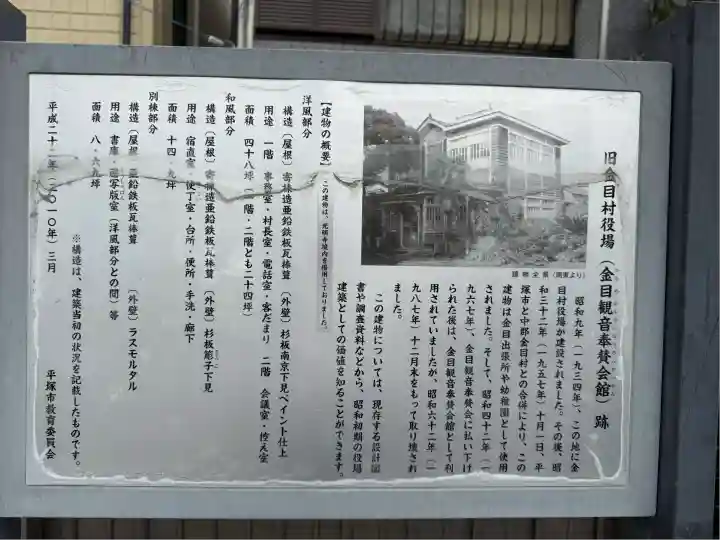 旧金目村役場（金目観音奉賛会館）跡
昭和九年（一九三四年）、この地に金
目村役場が建設されました。その後、昭
和三十二年（一九五七年）十月一日、平
塚市と中郡金目村との合併により、この
建物は金目出張所や幼稚園として使用
されました。そして、昭和四十二年（一
九六七年）、金目観音奉賛会に払い下げ
られた後は、金目観音奉賛会館として利
用されていましたが、昭和六十二年（一
九八七年）十二月末をもって取り壊され
ました。
この建物については、現存する設計図
書や調査資料などから、昭和初期の役場
建築としての価値を知ることができます。
建物全景（南東より）
【建物の概要】
この建物は、光明寺境内を借用しておりました。
洋風部分
構造〔屋根〕寄棟造亜鉛鉄板瓦棒葺　〔外壁〕杉板南京下見ペイント仕上
用途　一階　事務室・村長室・電話室・客だまり　二階　会議室・控え室
面積　四十八坪（一階・二階とも二十四坪）
和風部分
構造〔屋根〕寄棟造亜鉛鉄板瓦棒葺　〔外壁〕杉板簓子下見
用途　宿直室・使丁室・台所・便所・手洗・廊下
面積　十四・九坪
別棟部分
構造〔屋根〕亜鉛鉄板瓦棒葺　〔外壁〕ラスモルタル
用途　書庫・謄写版室（洋風部分との間）等
面積　八・六九坪
※構造は、建築当初の状況を記載したものです。
平成二十二年（二〇一〇年）三月　平塚市教育委員会